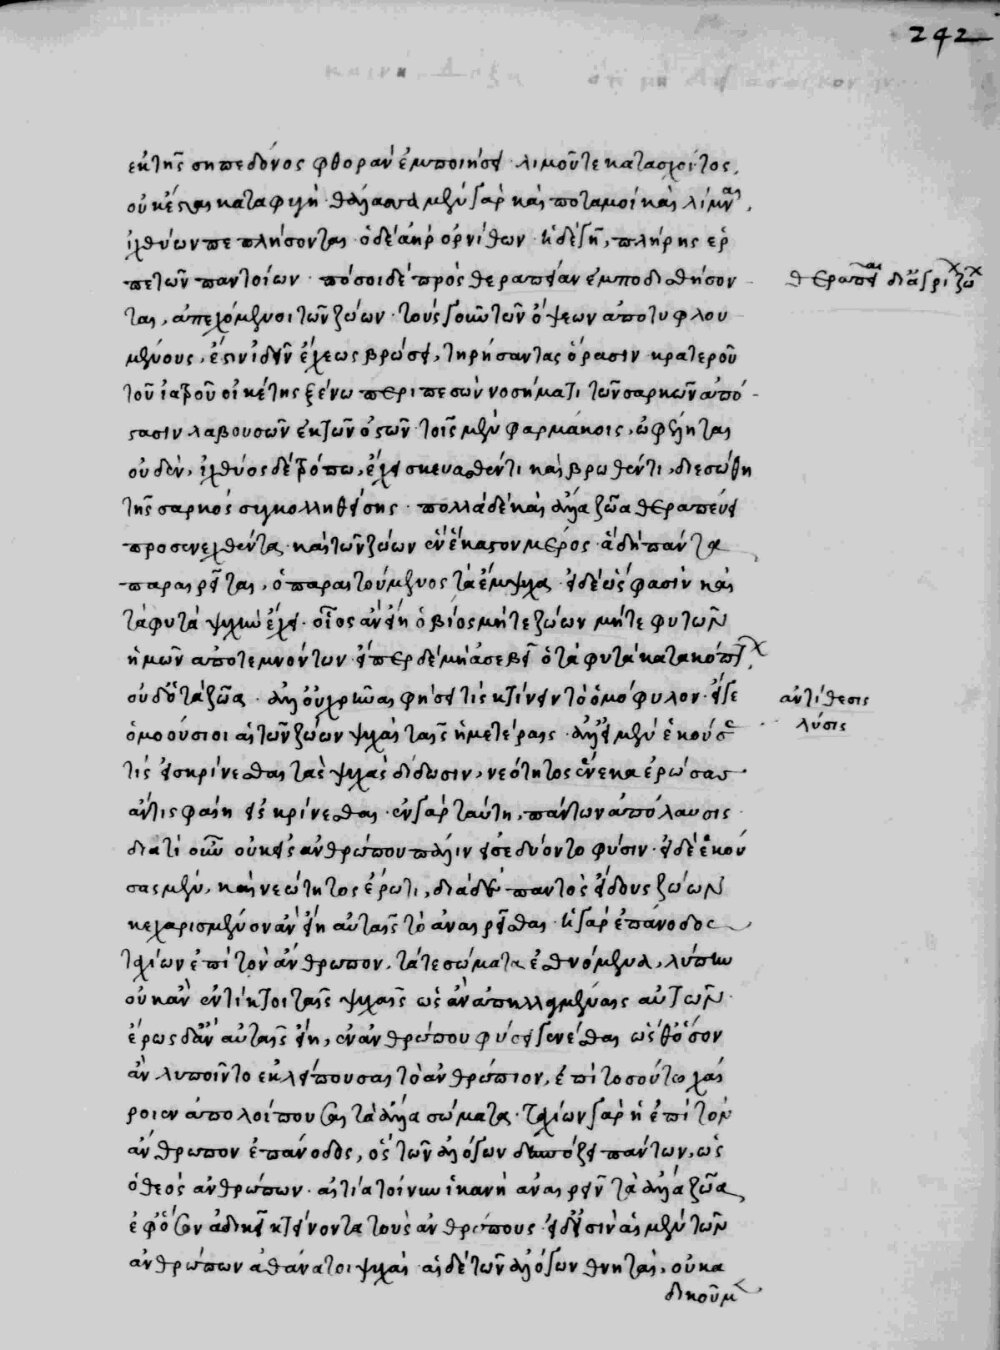 242
ἐκ τῆς σηπεδόνος φθορὰν ἐμποιήσει· λιμοῦ τε κατασχόντος,
οὐκ ἔσται καταφυγὴ· θάλαττα μὲν γὰρ καὶ ποταμοὶ καὶ λίμναι,
ἰχθύων πεπλήσονται· ὁ δὲ ἀὴρ ὀρνίθων· ἡ δὲ γῆ, πλήρης ἑρ
πετῶν παντοίων· πόσοι δὲ πρὸς θεραπείαν ἐμποδισθήσον
ται, ἀπεχόμενοι τῶν ζώων· τοὺς γοῦν τῶν ὄψεων ἀποτυφλου
μένους, ἔστιν ἰδεῖν ἔχεως βρώσει, τηρήσαντας ὅρασιν· κρατεροῦ
τοῦ ἰατροῦ οἰκέτης ξένω περιπεσὼν νοσήματι τῶν σαρκῶν ἀπό
στασιν λαβουσῶν ἐκ τῶν ὀστῶν· τοῖς μὲν φαρμάκοις, ὠφέληται
οὐδὲν, ἰχθύος δὲ τρόπω, ἔχει σκευασθέντι καὶ βρωθέντι, διεσώθη
τῆς σαρκὸς συγκολληθείσης· πολλὰ δὲ καὶ ἄλλα ζῶα θεραπεύει
προσενεχθέντα· καὶ τῶν ζώων ἓν ἕκαστον μέρος· ἃ δὴ πάντα
παραιρεῖται, ὁ παραιτούμενος τὰ ἔμψυχα· εἰ δὲ ὥς φασιν καὶ
τὰ φυτὰ ψυχὴν ἔχει· οἷος ἂν εἴη ὁ βίος μήτε ζώων μήτε φυτῶν
ἡμῶν ἀποτεμνόντων· εἴπερ δὲ μὴ ἀσεβεῖ ὁ τὰ φυτὰ κατακόπτων,
οὐδ' ὁ τὰ ζῶα· ἀλλ' οὐ χρῆναι φήσει τις κτείνειν τὸ ὁμόφυλον· εἴγε
ὁμοούσιοι αἱ τῶν ζώων ψυχαὶ ταῖς ἡμετέραις· ἀλλ' εἰ μὲν ἑκούσας
τὶς εἰσκρίνεσθαι τὰς ψυχὰς δίδωσιν, νεότητος ἕνεκα ἐρώσας
ἄν τις φαίη εἰσκρίνεσθαι· ἐν γὰρ ταύτη, πάντων ἀπόλαυσις·
διατί οὖν οὐκ εἰς ἀνθρώπου πάλιν εἰσεδύοντο φύσιν· εἰ δὲ ἑκού
σας μὲν, καὶ νεότητος ἔρωτι, διὰ δὲ παντὸς εἴδους ζώων
κεχαρισμένον ἂν εἴη αὐταῖς τὸ ἀναιρεῖσθαι· ἡ γὰρ ἐπάνοδος
ταχίων ἐπὶ τὸν ἄνθρωπον, τά τε σώματα ἐσθιόμενα, λύπην
οὐκ ἂν ἐντίκτοι ταῖς ψυχαῖς ὡς ἂν ἀπηλλαγμέναις αὐτῶν·
ἔρως δ' ἂν αὐταῖς εἴη, ἐν ἀνθρώπου φύσει γενέσθαι ὥσθ' ὅσον
ἂν λυποῖντο ἐκλείπουσαι τὸ ἀνθρώπιον, ἐπὶ τοσοῦτο χαί
ροιεν ἀπολείπουσαι τὰ ἄλλα σώματα· ταχίων γὰρ ἡ ἐπὶ τὸν
ἄνθρωπον ἐπάνοδος, ὃς τῶν ἀλόγων δεσπόζει πάντων, ὡς
ὁ θεὸς ἀνθρώπων· αἰτία τοίνυν ἱκανὴ ἀναιρεῖν τὰ ἄλλα ζῶα,
ἐφ' ὅσον ἀδικεῖ κτείνοντα τοὺς ἀνθρώπους· εἰ δ' εἰσὶν αἱ μὲν τῶν
ἀνθρώπων ἀθάνατοι ψυχαὶ αἱ δὲ τῶν ἀλόγων θνηταὶ, οὐκ ἀ
δικοῦμεν
ἀντίθεσις
λύσις